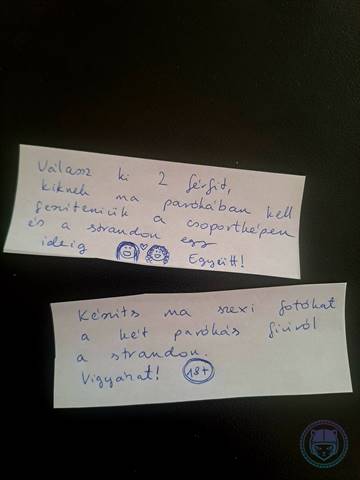 Válassz ki 2 férfit,
kiknek ma parókában kell
feszíteniük a csoportképen
és a strandon egy
ideig Együtt!
Készíts ma szexi fotókat
a két parókás fiúról
a strandon.
Vigyázat! 18+